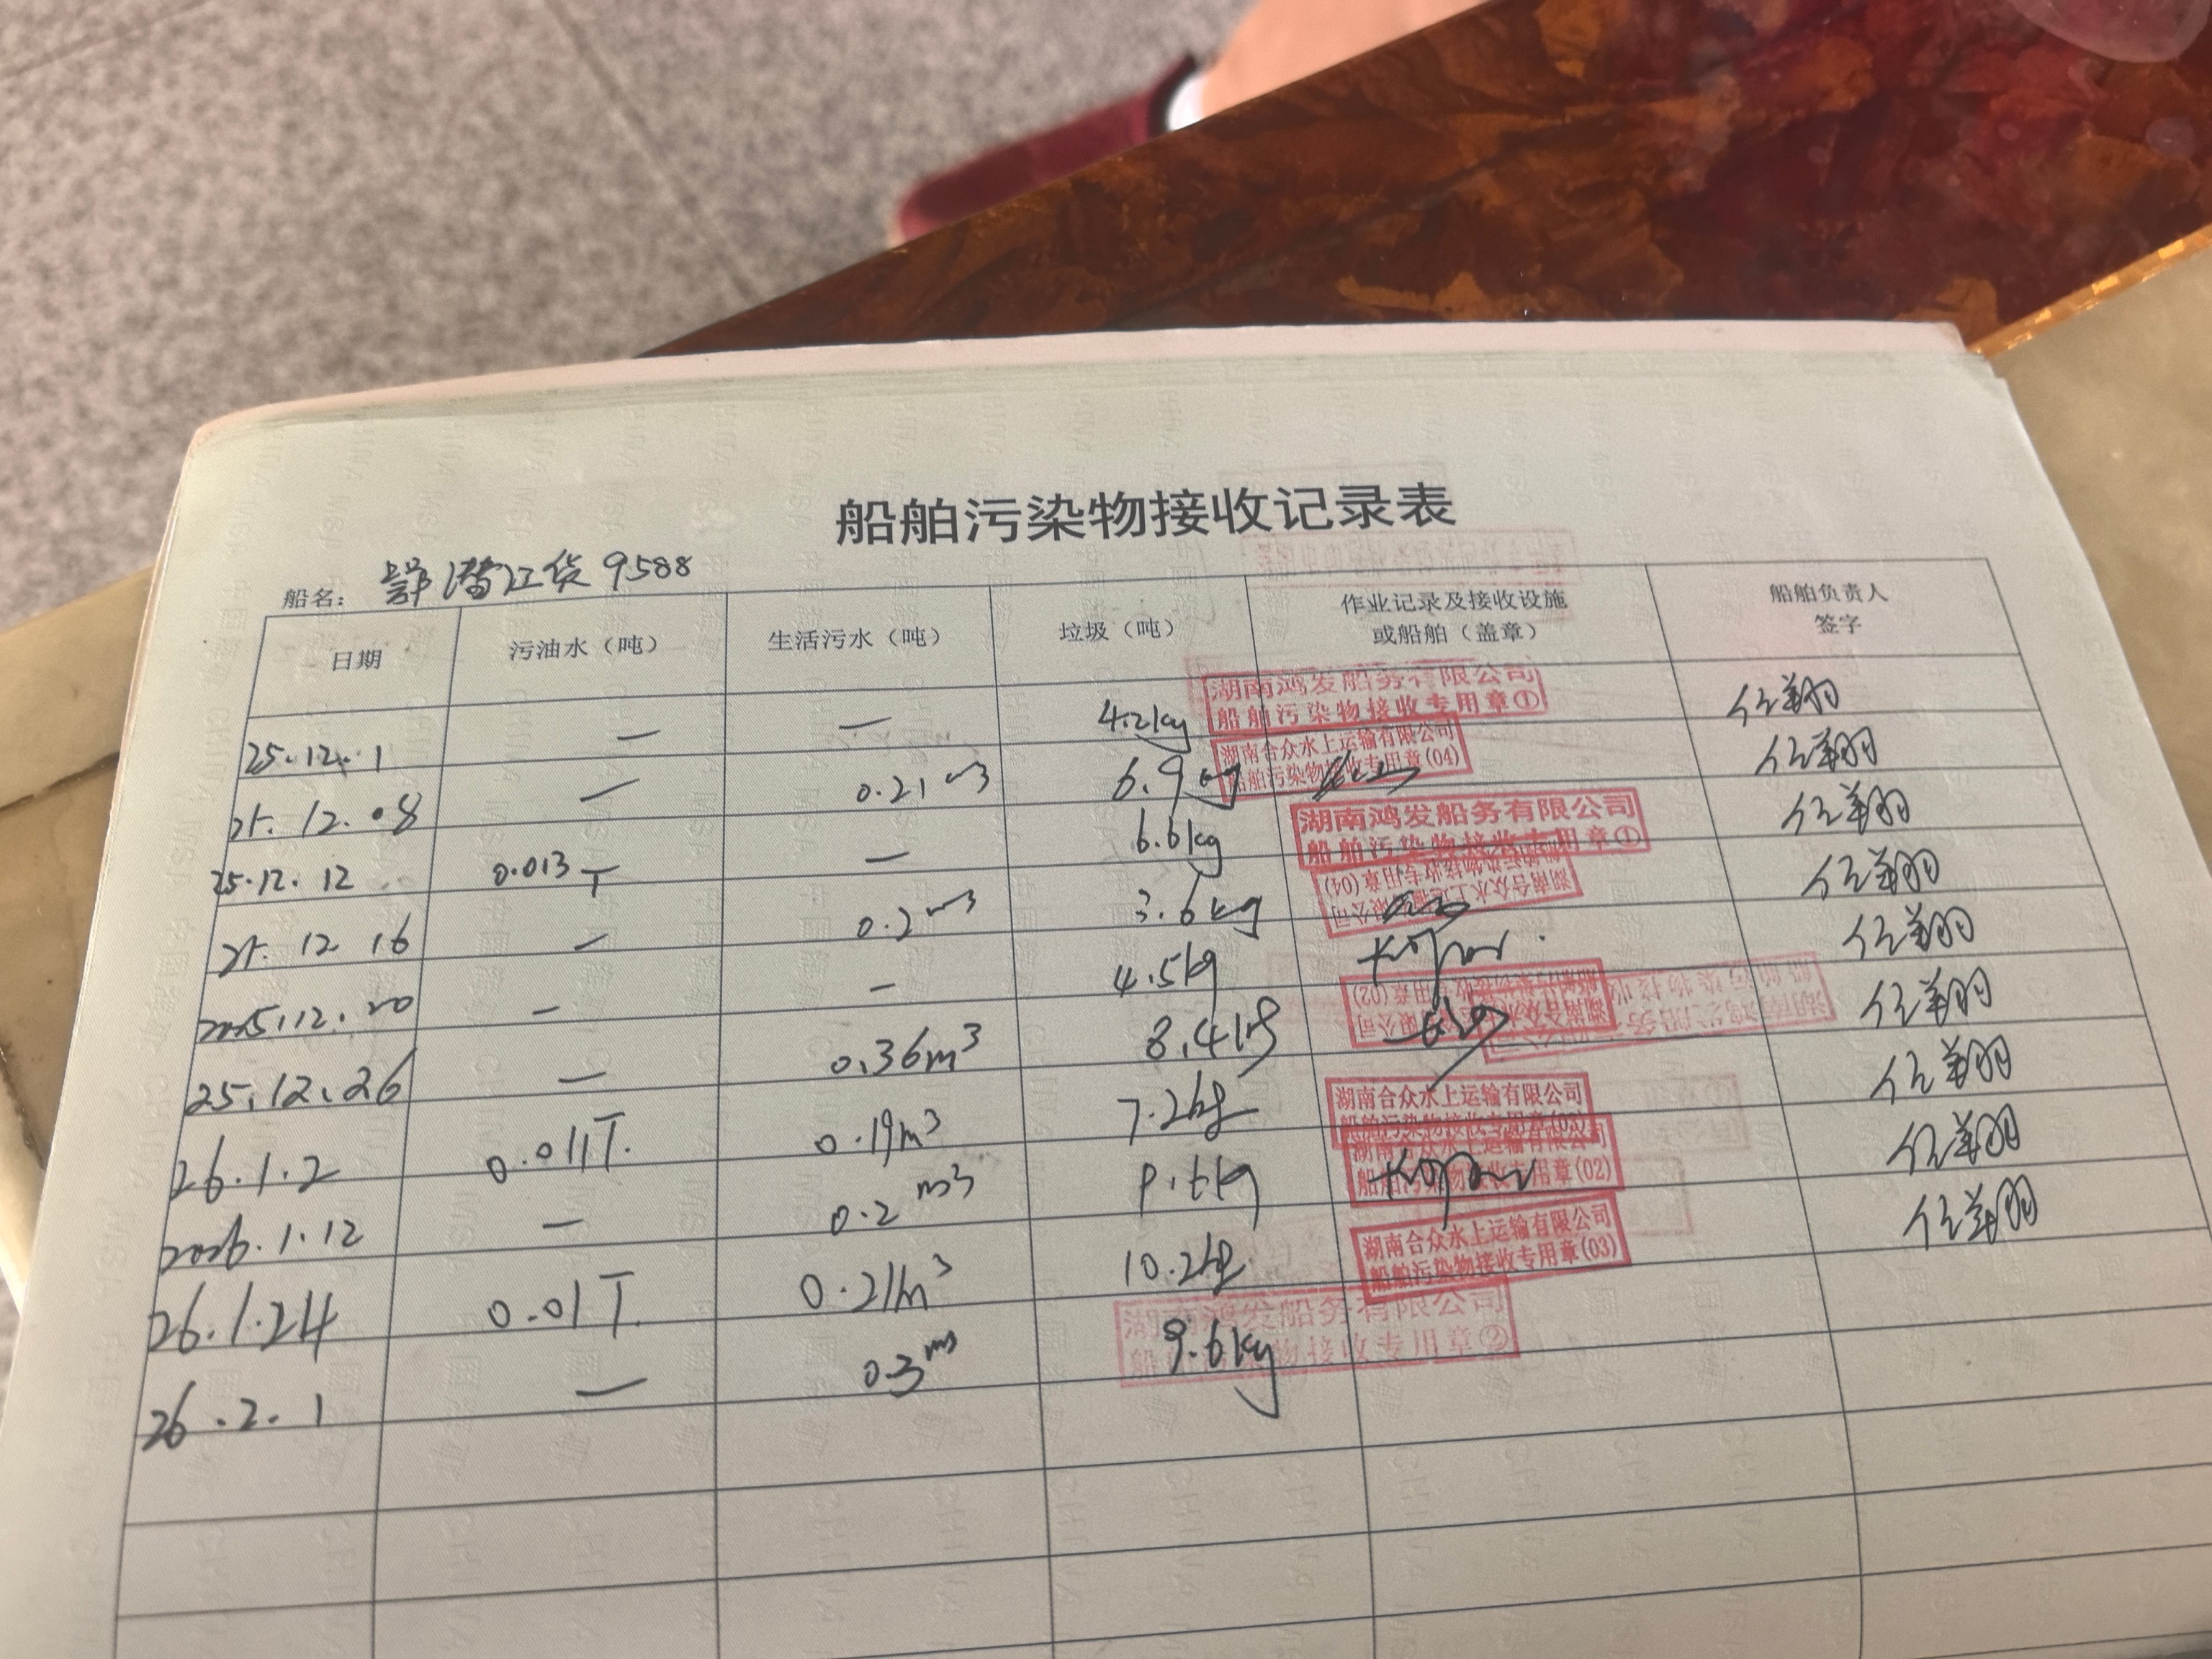 船舶污染物接收记录表
船名： 鄂潜江货 9588
日期 污油水（吨） 生活污水（吨） 垃圾（吨） 作业记录及接收设施或船舶（盖章） 船舶负责人签字
25.12.1 — — 4.2kg 湖南鸿发船务有限公司 船舶污染物接收专用章① 任翔
25.12.08 — 0.21m3 6.9kg 湖南合众水上运输有限公司 船舶污染物接收专用章(04) 任翔
25.12.12 0.013T — 6.6kg 湖南鸿发船务有限公司 船舶污染物接收专用章① 任翔
25.12.16 — 0.2m3 3.6kg 湖南合众水上运输有限公司 船舶污染物接收专用章(04) 任翔
2025.12.20 — — 4.5kg 任翔
25.12.26 — 0.36m3 8.4kg 湖南合众水上运输有限公司 船舶污染物接收专用章(02) 任翔
26.1.2 0.011T. 0.19m3 7.2kg 湖南合众水上运输有限公司 任翔
2026.1.12 — 0.2m3 湖南合众水上运输有限公司 船舶污染物接收专用章(02) 任翔
26.1.24 0.01T. 0.21m3 10.2kg 湖南合众水上运输有限公司 船舶污染物接收专用章(03) 任翔
26.2.1 — 0.3m3 9.6kg 湖南鸿发船务有限公司 船舶污染物接收专用章②